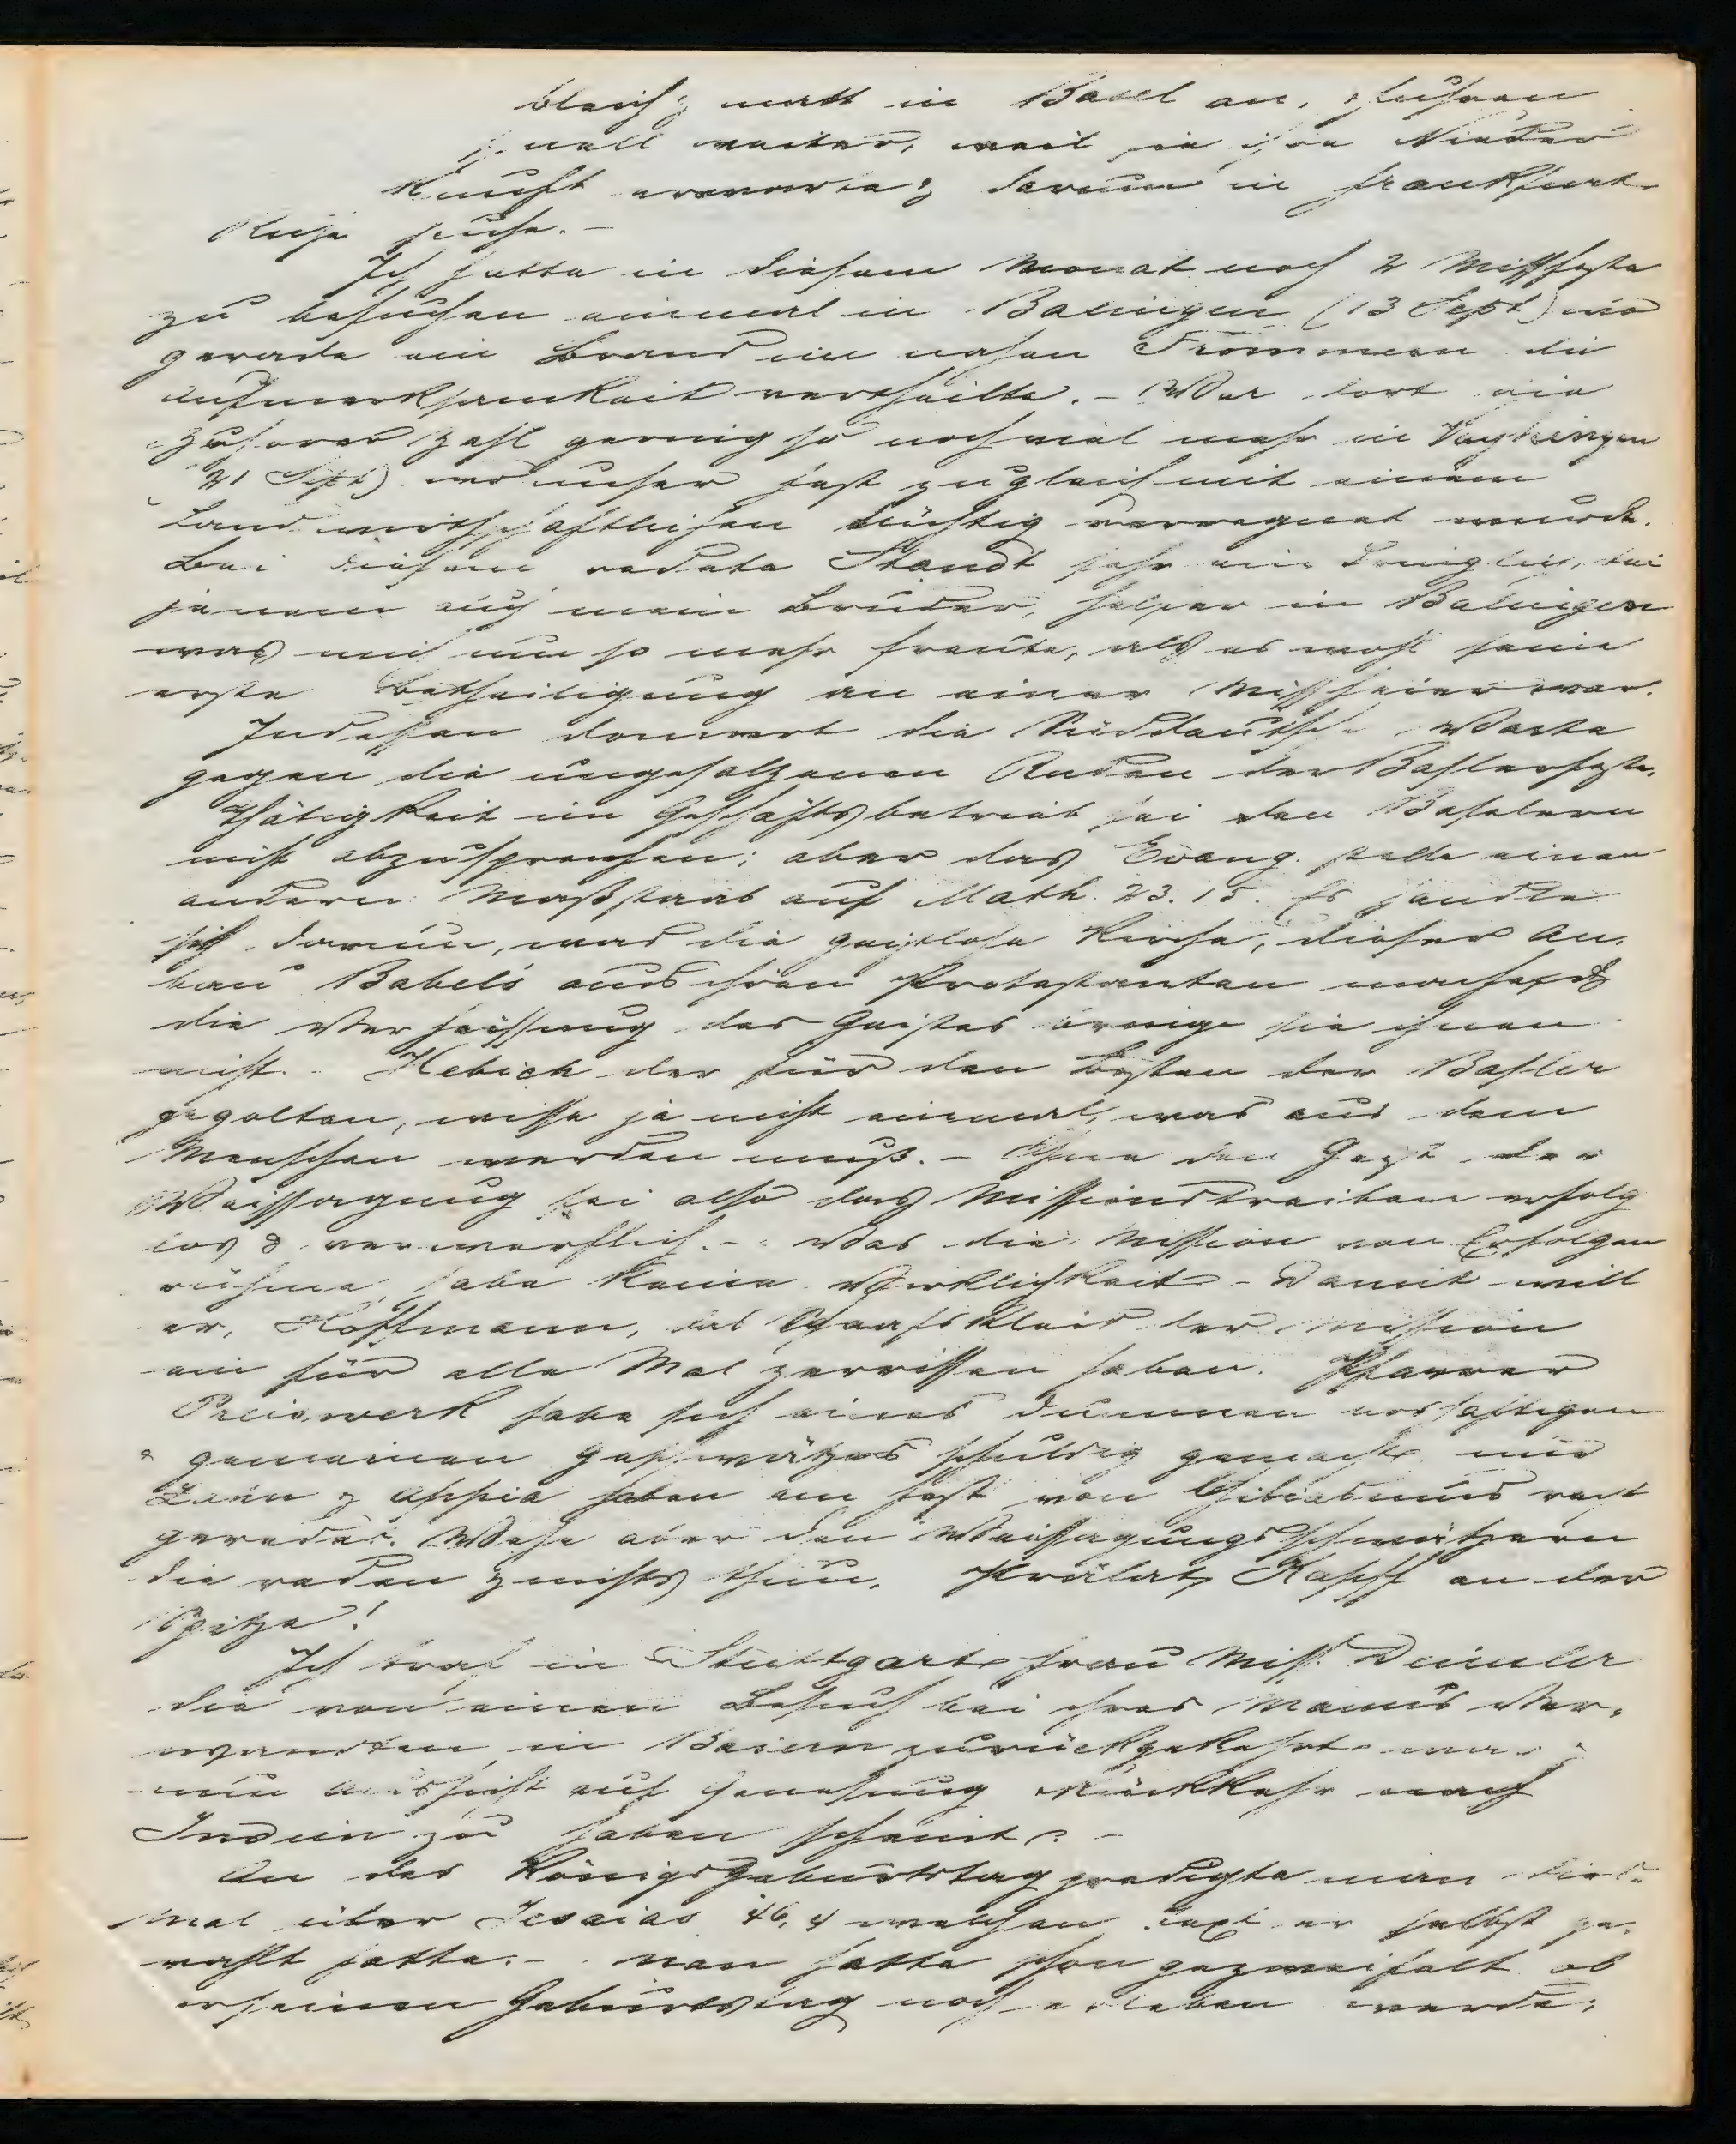 bleich & matt in Basel an, & fuhren
schnell weiter, weil sie ihre Nieder
kunft erwarte & darum in Frankfurt
Ruhe suche. –
Ich hatte in diesem Monat noch 2 Missfeste
zu besuchen einmal in Balingen (13 Sept) wo
gerade ein Brand im nahen Frommern die
Aufmerksamkeit vertheilte. – War dort die
Zuhörer Zahl gering so noch viel mehr in Vayhingen
21 Sept) wo unser Fest zugleich mit einem
Landwirthschaftlichen tüchtig verregnet wurde.
Bei diesem redete Staudt sehr eindringlich, bei
jenem auch mein Bruder, Helfer in Balingen
was mich um so mehr freute, als es wohl seine
erste Betheiligung an einer Missfeier war.
Indessen donnert die Süddeutsche Warte
gegen die ungesalzenen Reden der Baslerfeste.
Thätigkeit im Geschäftsbetrieb sei den Baselern
nicht abzusprechen; aber das Evang. stelle einen
andern Maßstab auf Math. 23. 15. Es handle
sich darum, was die geistlose Kirche, dieser An-
bau Babels aus ihren Protestanten mache &
die Verheissung des Geistes bringe sie ihnen
nicht. Hebich der für den Besten der Basler
gegolten, wisse ja nicht einmal, was aus dem
Menschen werden muß. – Ohne den Geist der
Weissagung sei also das Missionstreiben erfolg
los & verwerflich. – Was die Mission von Erfolgen
rühme, habe keine Wirklichkeit – Damit will
er, Hoffmann, das Schaafskleid der Mission
ein für alle Mal zerrissen haben. Pfarrer
Preiswerk habe sich eines dummen boshaftigen
& gemeinen Geschwätzes schuldig gemacht und
& Appia haben am Fest von Chiliasmus recht
geredet. Wehe aber den Weissagungsschwätzern
die reden & nichts thun, Prälat Kapff an der
Spitze!
Ich traf in Stuttgart Frau Miss. Deimler
die von einem Besuch bei ihres Manns Ver-
wandten in Baiern zurückgekehrt war &
nun Aussicht auf Genesung & Rückkehr nach
Indien zu haben scheint. –
An des Königs Geburtstag predigte man dies-
mal über Jesaias 46, 4 welchen Text er selbst ge-
wählt hatte. – Man hatte schon gezweifelt ob
er seinen Geburtstag noch erleben werde;